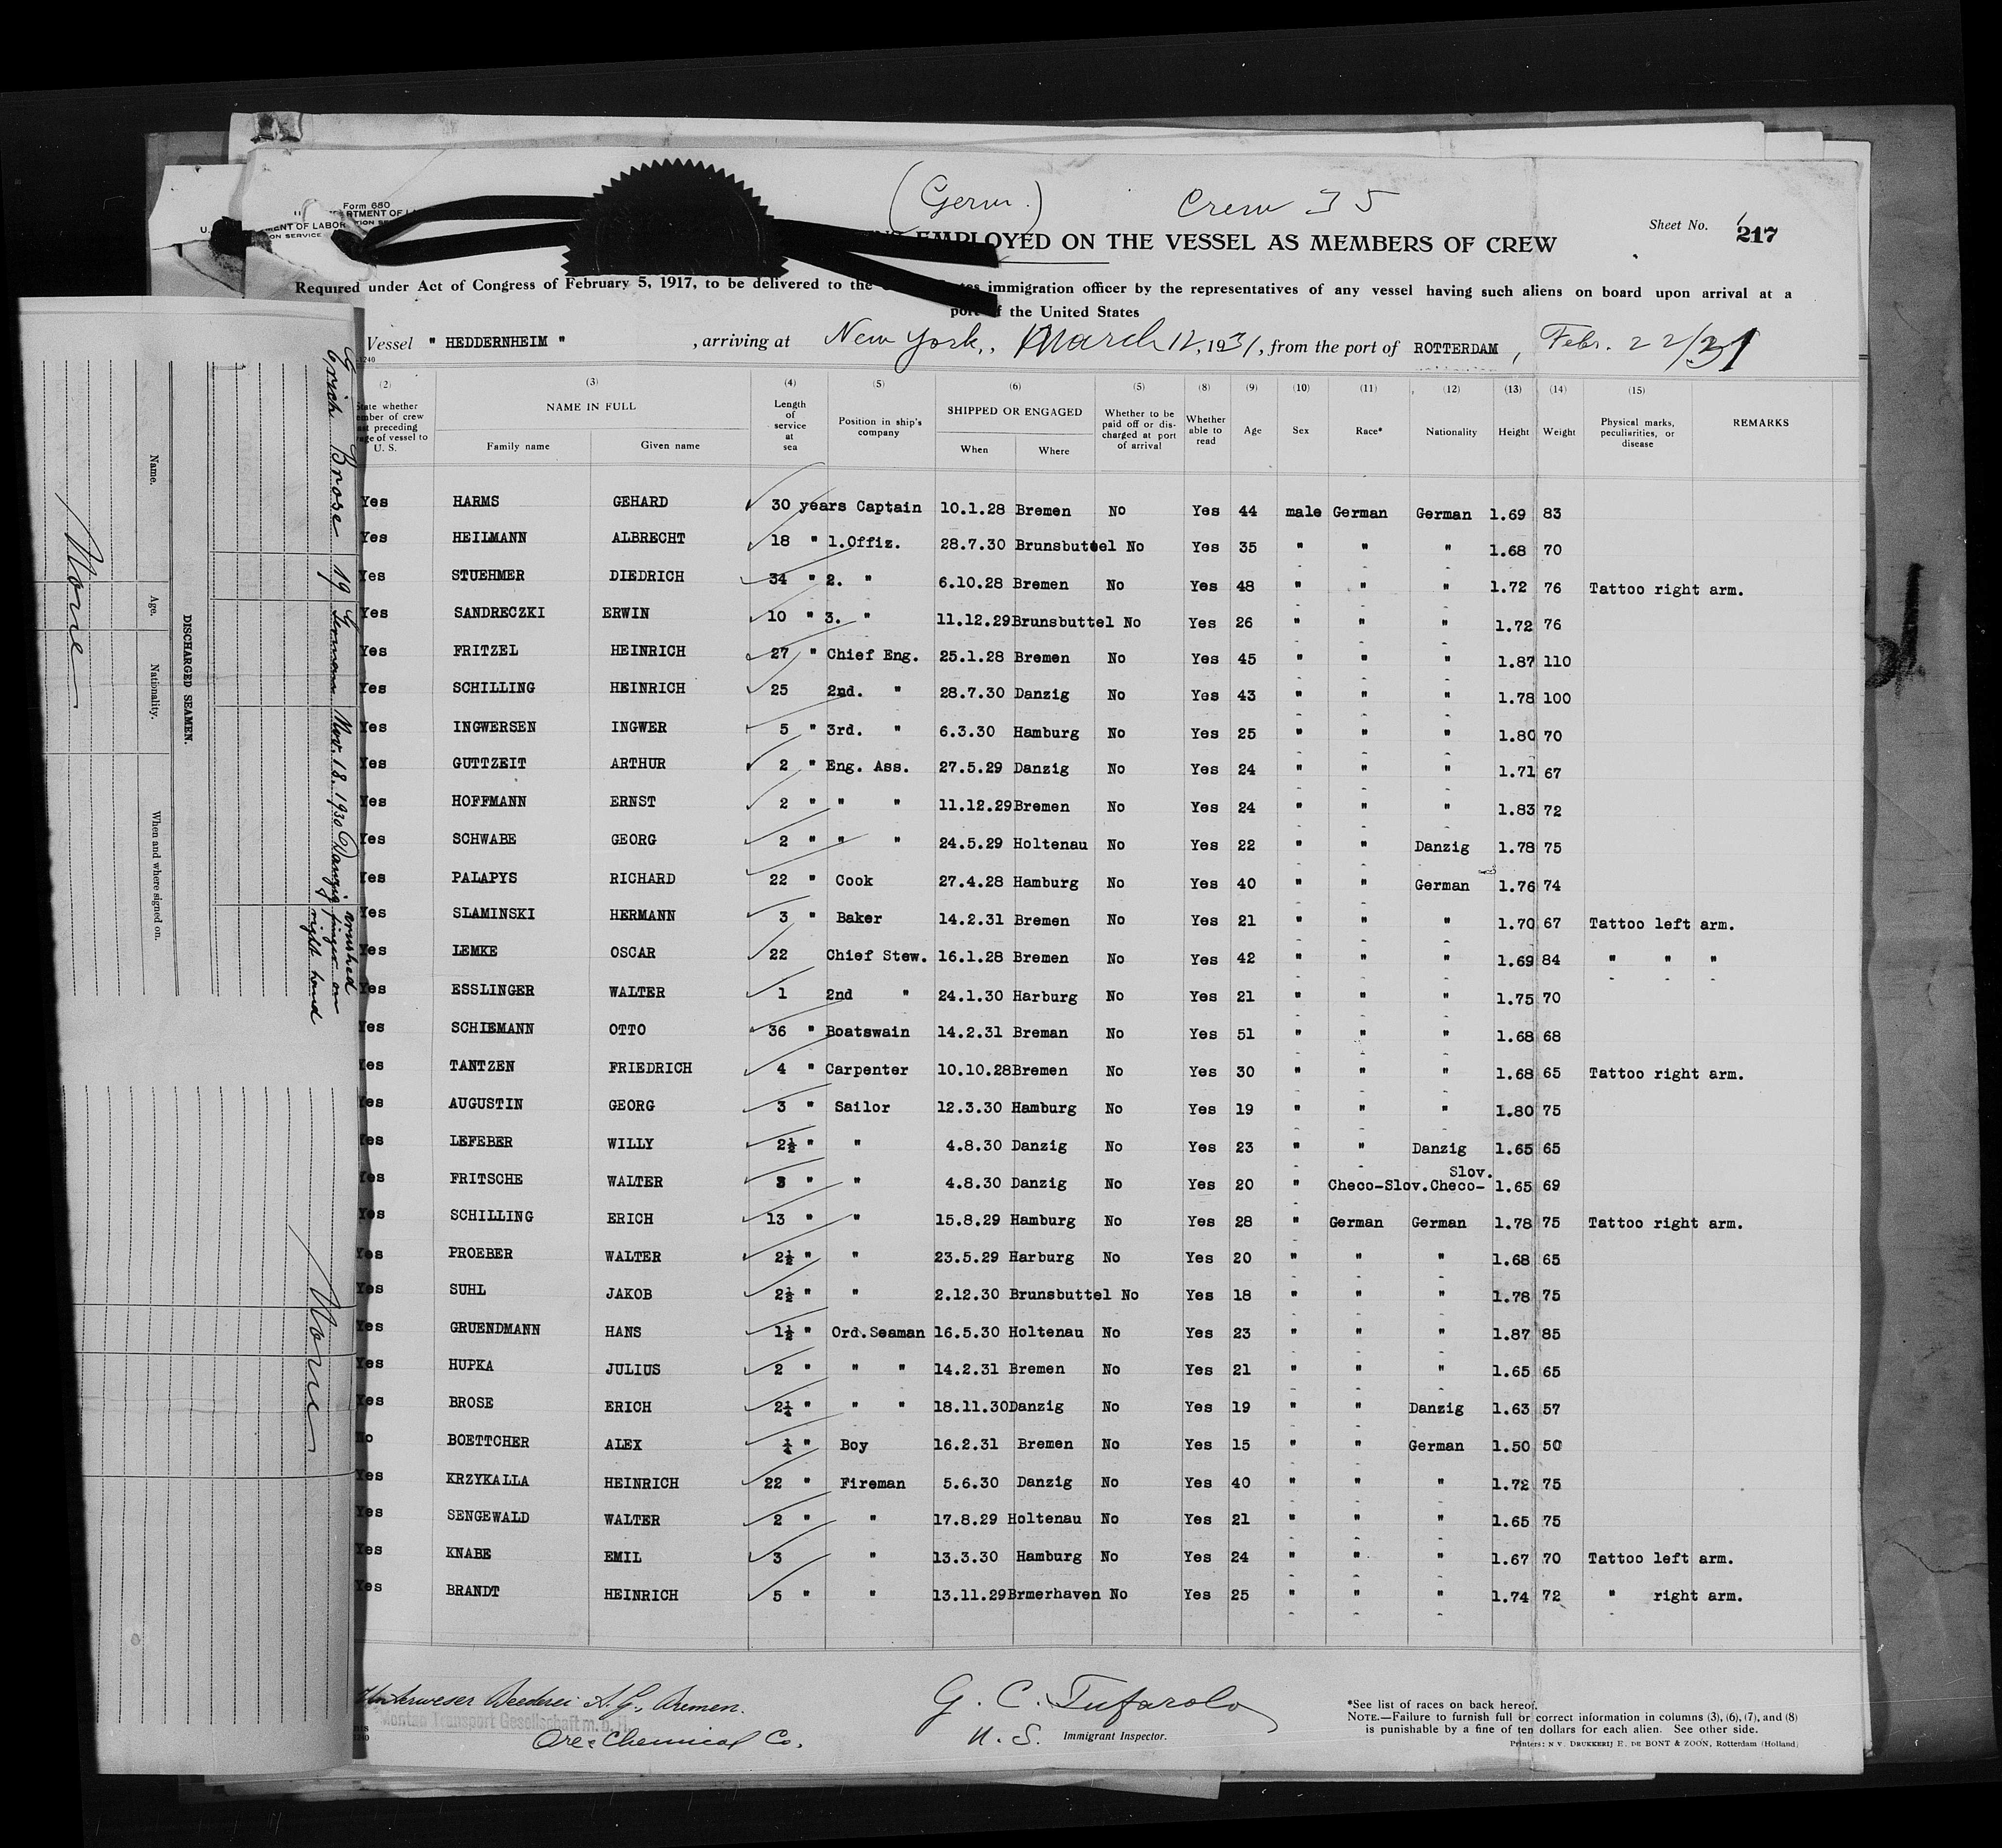 (Germ.) Crew 35
Form 680
U. S. DEPARTMENT OF LABOR
Sheet No. 217
EMPLOYED ON THE VESSEL AS MEMBERS OF CREW
Required under Act of Congress of February 5, 1917, to be delivered to the immigration officer by the representatives of any vessel having such aliens on board upon arrival at a
port of the United States
Vessel " HEDDERNHEIM " , arriving at New York, March 12, 1931, from the port of ROTTERDAM , Febr. 22/31
(2) (3) (4) (5) (6) (5) (8) (9) (10) (11) (12) (13) (14) (15)
State whether member of crew last preceding voyage of vessel to U. S. NAME IN FULL Family name Given name Length of service at sea Position in ship's company SHIPPED OR ENGAGED When Where Whether to be paid off or discharged at port of arrival Whether able to read Age Sex Race* Nationality Height Weight Physical marks, peculiarities, or disease REMARKS
Yes HARMS GEHARD 30 years Captain 10.1.28 Bremen No Yes 44 male German German 1.69 83
Yes HEILMANN ALBRECHT 18 " 1.Offiz. 28.7.30 Brunsbuttel No Yes 35 " " " 1.68 70
Yes STUEHMER DIEDRICH 34 " 2. " 6.10.28 Bremen No Yes 48 " " " 1.72 76 Tattoo right arm.
Yes SANDRECZKI ERWIN 10 " 3. " 11.12.29 Brunsbuttel No Yes 26 " " " 1.72 76
Yes FRITZEL HEINRICH 27 " Chief Eng. 25.1.28 Bremen No Yes 45 " " " 1.87 110
Yes SCHILLING HEINRICH 25 2nd. " 28.7.30 Danzig No Yes 43 " " " 1.78 100
Yes INGWERSEN INGWER 5 " 3rd. " 6.3.30 Hamburg No Yes 25 " " " 1.80 70
Yes GUTTZEIT ARTHUR 2 " Eng. Ass. 27.5.29 Danzig No Yes 24 " " " 1.71 67
Yes HOFFMANN ERNST 2 " " " 11.12.29 Bremen No Yes 24 " " " 1.83 72
Yes SCHWABE GEORG 2 " " " 24.5.29 Holtenau No Yes 22 " " Danzig 1.78 75
Yes PALAPYS RICHARD 22 " Cook 27.4.28 Hamburg No Yes 40 " " German 1.76 74
Yes SLAMINSKI HERMANN 3 " Baker 14.2.31 Bremen No Yes 21 " " " 1.70 67 Tattoo left arm.
Yes LEMKE OSCAR 22 Chief Stew. 16.1.28 Bremen No Yes 42 " " " 1.69 84 " " "
Yes ESSLINGER WALTER 1 2nd " 24.1.30 Harburg No Yes 21 " " " 1.75 70
Yes SCHIEMANN OTTO 36 " Boatswain 14.2.31 Breman No Yes 51 " " " 1.68 68
Yes TANTZEN FRIEDRICH 4 " Carpenter 10.10.28 Bremen No Yes 30 " " " 1.68 65 Tattoo right arm.
Yes AUGUSTIN GEORG 3 " Sailor 12.3.30 Hamburg No Yes 19 " " " 1.80 75
Yes LEFEBER WILLY 2½ " " 4.8.30 Danzig No Yes 23 " " Danzig 1.65 65
Yes FRITSCHE WALTER 3 " " 4.8.30 Danzig No Yes 20 " Checo-Slov. Checo-Slov. 1.65 69
Yes SCHILLING ERICH 13 " " 15.8.29 Hamburg No Yes 28 " German German 1.78 75 Tattoo right arm.
Yes PROEBER WALTER 2½ " " 23.5.29 Harburg No Yes 20 " " " 1.68 65
Yes SUHL JAKOB 2½ " " 2.12.30 Brunsbuttel No Yes 18 " " " 1.78 75
Yes GRUENDMANN HANS 1½ " Ord.Seaman 16.5.30 Holtenau No Yes 23 " " " 1.87 85
Yes HUPKA JULIUS 2 " " " 14.2.31 Bremen No Yes 21 " " " 1.65 65
Yes BROSE ERICH 2¼ " " " 18.11.30 Danzig No Yes 19 " " Danzig 1.63 57
No BOETTCHER ALEX ¼ " Boy 16.2.31 Bremen No Yes 15 " " German 1.50 50
Yes KRZYKALLA HEINRICH 22 " Fireman 5.6.30 Danzig No Yes 40 " " " 1.72 75
Yes SENGEWALD WALTER 2 " " 17.8.29 Holtenau No Yes 21 " " " 1.65 75
Yes KNABE EMIL 3 " 13.3.30 Hamburg No Yes 24 " " " 1.67 70 Tattoo left arm.
Yes BRANDT HEINRICH 5 " " 13.11.29 Brmerhaven No Yes 25 " " " 1.74 72 " right arm.
Unterweser Reederei A. G., Bremen.
Montan Transport Gesellschaft m. b. H.
Ore & Chemical Co.
G. C. Tufarolo
U. S. Immigrant Inspector.
*See list of races on back hereof.
NOTE.—Failure to furnish full or correct information in columns (3), (6), (7), and (8)
is punishable by a fine of ten dollars for each alien. See other side.
Printers: N.V. DRUKKERIJ E. DE BONT & ZOON, Rotterdam (Holland)
Erich Brose 19 German Nov. 18. 1930 Danzig crushed finger on right hand
DISCHARGED SEAMEN.
Name. Age. Nationality. When and where signed on.
None
None